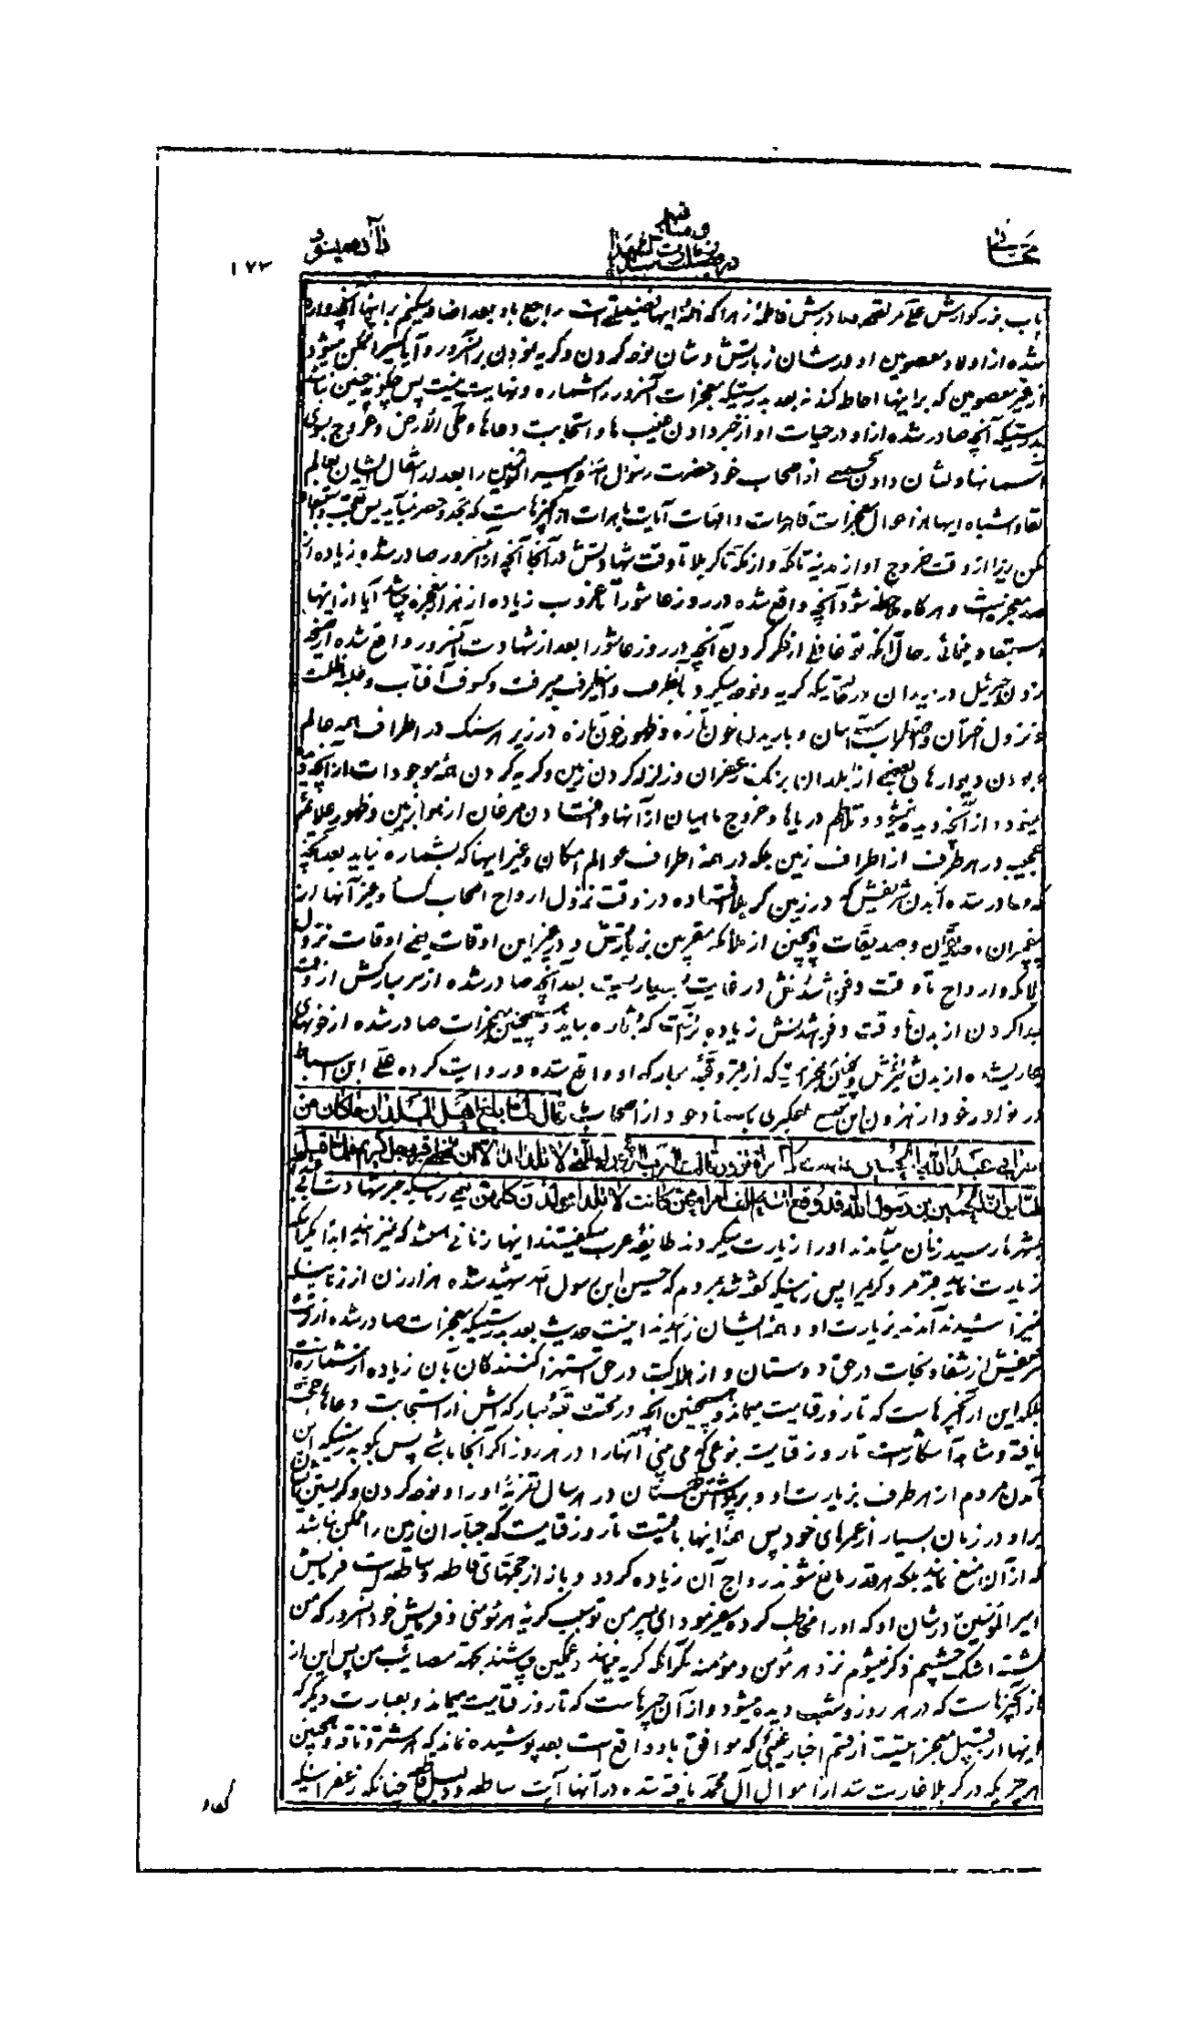 ۱۷۳
باب بزرگوارش علی مرتضی و مادرش فاطمه زهرا که همه اینها فضیلتی است راجع باو بعد اضافه میکنم براینها آنچه وارد
شده از اولاد معصومین او در شان زیارتش و شان نوحه کردن و گریه نمودن بر آنسرور و آیا کسیرا ممکن میشود
از غیر معصومین که براینها احاطه کند نه بعد بدرستیکه معجزات آنسرور را شماره و نهایت نیست پس چگونه چنین نباشد
بدرستیکه آنچه صادر شده از او در حیات او از خبر دادن غیب ها و استجابت دعاها و طی الارض و عروج بسوی
آسمانها و نشان دادن بعضی از اصحاب خود حضرت رسول الله و امیر المؤمنین را بعد از انتقال ایشان بعالم
بقا و اشباه اینها از احوال معجزات قاهرات و آیات باهرات از آنچیزهاست که بحد و حصر نیاید پس تعجب و استبعاد
مکن زیرا از وقت خروج او از مدینه تا مکه و از مکه تا کربلا تا وقت شهادتش در آنجا آنچه از آنسرور صادر شده زیاده از
صد معجزه است و هرگاه ملاحظه شود آنچه واقع شده در روز عاشورا تا غروب زیاده از هزار معجزه میباشد آیا از اینها
استبعاد مینمائی و حال آنکه تو غافلی از نظر کردن آنچه در روز عاشورا بعد از شهادت آنسرور واقع شده از صیحه
زدن جبرئیل در میدان در حالتیکه گریه و نوحه میکرد بآنطرف و اینطرف میرفت و کسوف آفتاب و غلبه ظلمت
و نزول خسران و اضطراب آسمان و باریدن خون تازه و ظهور خون تازه در زیر هر سنگ در اطراف همه عالم
و بودن دیوارهای بعضی از بلدان برنگ زعفران و زلزله کردن زمین و گریه کردن همه موجودات از آنچه دیده
میشود و از آنچه دیده نمیشود و تلاطم دریاها و خروج ماهیان از آنها و افتادن مرغان از هوا بزمین و ظهور علائم
عجیب در هر طرف از اطراف زمین بلکه در همه اطراف عوالم امکان و غیر اینها که بشماره نیاید بعد آنچه
که صادر شده از بدن شریفش که در زمین کربلا افتاده در وقت نزول ارواح اصحاب کساء و غیر آنها از
پیغمبران و صدیقان و صدیقات و همچنین از ملائکه مقربین بزیارتش و در غیر این اوقات یعنی اوقات نزول
ملائکه و ارواح تا وقت دفن شدنش در غایت بسیاریست بعد آنچه صادر شده از سر مبارکش از وقت
جدا کردن از بدن تا وقت دفن شدنش زیاده از آنست که بشماره بیاید و همچنین معجزات صادر شده از خونهای
جاری شده از بدن شریفش و همچنین معجزات که از قبر و قبه مبارکه او واقع شده و روایت کرده علی ابن اسباط
در نوادر خود از هرون ابن عبری باسناد خود از اصحاب قال لما بلغ اهل البلدان ما کان من
امر ابی عبد الله الحسین
للناس ان الحسین بن رسول الله قد وقع اتته الف امراة ممن کانت لا تلد فولدن کلهن یعنی زمانیکه خبر شهادت
بشهرها رسید زنان میآمدند او را زیارت میکردند طائفه عرب میگفتند اینها زنانی هستند که نمیزایند ابدا مگر اینکه
زیارت نمایند قبر مرد کریم را پس زمانیکه گفته شد بمردم که حسین ابن رسول الله شهید شده هزار زن از زنانیکه
نمیزائیدند آمدند بزیارت او و همه ایشان زائیدند اینست حدیث بعد بدرستیکه معجزات صادر شده از تربت
شریفش از شفا و نجات در حق دوستان و از هلاکت در حق استهزا کنندگان بآن زیاده از شماره است
بلکه این از آنچیزهاست که تا روز قیامت میماند و همچنین آنچه در تحت قبه مبارکه اش از استجابت دعاها تحقق
یافته و شاهد آشکار است تا روز قیامت بنوعی که می بینی آنها را در هر روز اگر آنجا باشی پس بگو بدرستیکه این
آمدن مردم از هر طرف بزیارت او و برپا داشتن شیعیان در هر سال تعزیه او را و نوحه کردن و گریستن ایشان
براو در زمان بسیار از عمرهای خود پس همه اینها باقیست تا روز قیامت که جباران زمین را ممکن نباشد
که از آن منع نمایند بلکه هر قدر مانع شوند رواج آن زیاده گردد و باز از حجتهای قاطعه و ساطعه است فرمایش
امیر المؤمنین در شان او که او را مخاطب کرده میفرمود ای پسر من تو سبب گریه هر مؤمنی و فرمایش خود آنسرور که من
کشته اشک چشمم ذکر نمیشوم نزد هر مؤمن و مؤمنه مگر آنکه گریه مینماید و غمگین میشوند بجهة مصائب من پس این از
از آنچیزهاست که در هر روز و شب دیده میشود و از آن چیزهاست که تا روز قیامت میماند و بعبارت دیگر که
اینها از قبیل معجزاتیست از قسم اخبار غیبی که موافق با واقع است بعد پوشیده نماند که هر شتر و ناقه و همچنین
هر چیزیکه در کربلا غارت شد از اموال آل محمد یافته شده در آنها آیت ساطعه و دلیل قاطع چنانکه زعفرانیکه